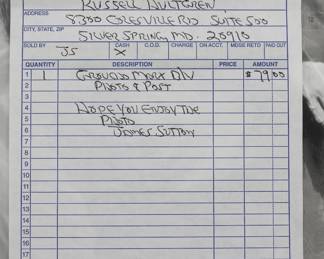 RUSSELL HULTGREN
ADDRESS
8300 COLESVILLE RD SUITE 500
CITY, STATE, ZIP
SILVER SPRING, MD. 20910
SOLD BY CASH C.O.D. CHARGE ON ACCT. MDSE RETD PAID OUT
JS X
QUANTITY DESCRIPTION PRICE AMOUNT
1 1 $79 00
2 PHOTO & POST
3
4 HOPE YOU ENJOY THE
5 PHOTO
6 JAMES SUTTON
7
8
9
10
11
12
13
14
15
16
17